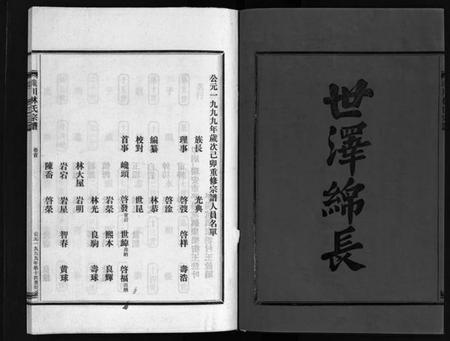 世澤綿長
公元一九九九年歲次己卯重修宗譜人員名單
族長 光典
理事 啓弢 啓祥 壽浩
啓淦
編纂 林恭
校對 世昆
首事 嶬頭 啓發 世歸 啓福
岩榮 熙本 良輝
林光 良駒 壽球
林大屋 岩明
岩宕 岩星 智春 黃球
陳喬 啓榮
川林氏宗譜
卷首